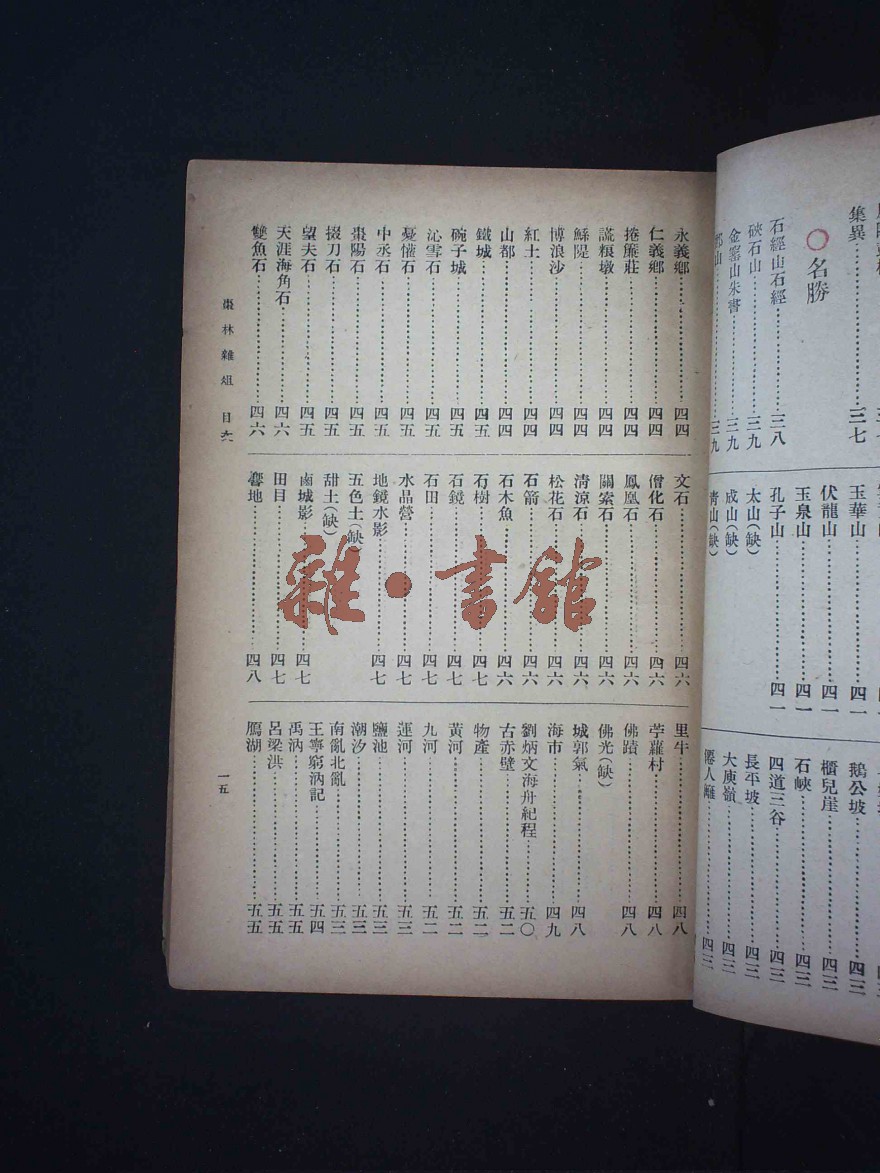 集異……三七
○名勝
石經山石經……三八
硤石山……三九
金窰山朱書……三九
三九
玉華山……四一
伏龍山……四一
玉泉山……四一
孔子山……四一
太山(缺)
成山(缺)
青山(缺)
鵝公坡……四三
櫃兒崖……四三
石峽……四三
四道三谷……四三
長平坡……四三
大庾嶺……四三
僊人……四三
永義鄉……四四
仁義鄉……四四
捲簾莊……四四
謊糧墩……四四
穌隄……四四
博浪沙……四四
紅土……四四
山都……四四
鐵城……四五
碗子城……四五
沁雪石……四五
憂懽石……四五
中丞石……四五
棗陽石……四五
掇刀石……四五
望夫石……四五
天涯海角石……四六
雙魚石……四六
文石……四六
僧化石……四六
鳳凰石……四六
關索石……四六
清涼石……四六
松花石……四六
石箭……四六
石木魚……四六
石樹……四七
石鏡……四七
石田……四七
水晶營……四七
地鏡水影……四七
五色土(缺)
甜土(缺)
鹵城影……四七
田目……四七
響地……四八
里牛……四八
苧蘿村……四八
佛蹟……四八
佛光(缺)
城郭氣……四八
海市……四九
劉炳文海舟紀程……五〇
古赤壁……五二
物產……五二
黃河……五二
九河……五二
運河……五三
鹽池……五三
潮汐……五三
南亂北亂……五三
王寧窮汭記……五四
禹汭……五五
呂梁洪……五五
鴈湖……五五
棗林雜俎 目次
一五
雜·書館